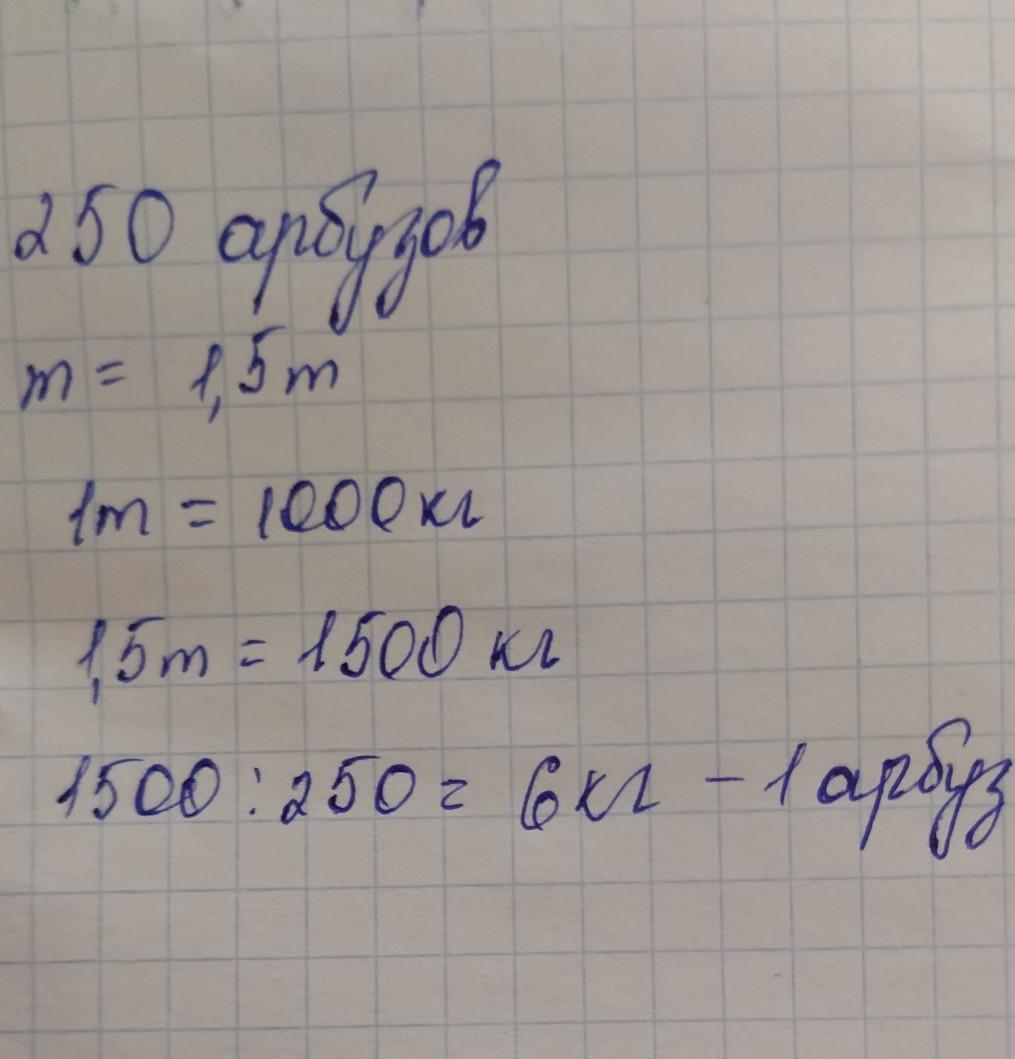 250 арбузов
m = 1,5 т
1т = 1000 кг
1,5т = 1500 кг
1500 : 250 = 6 кг - 1 арбуз